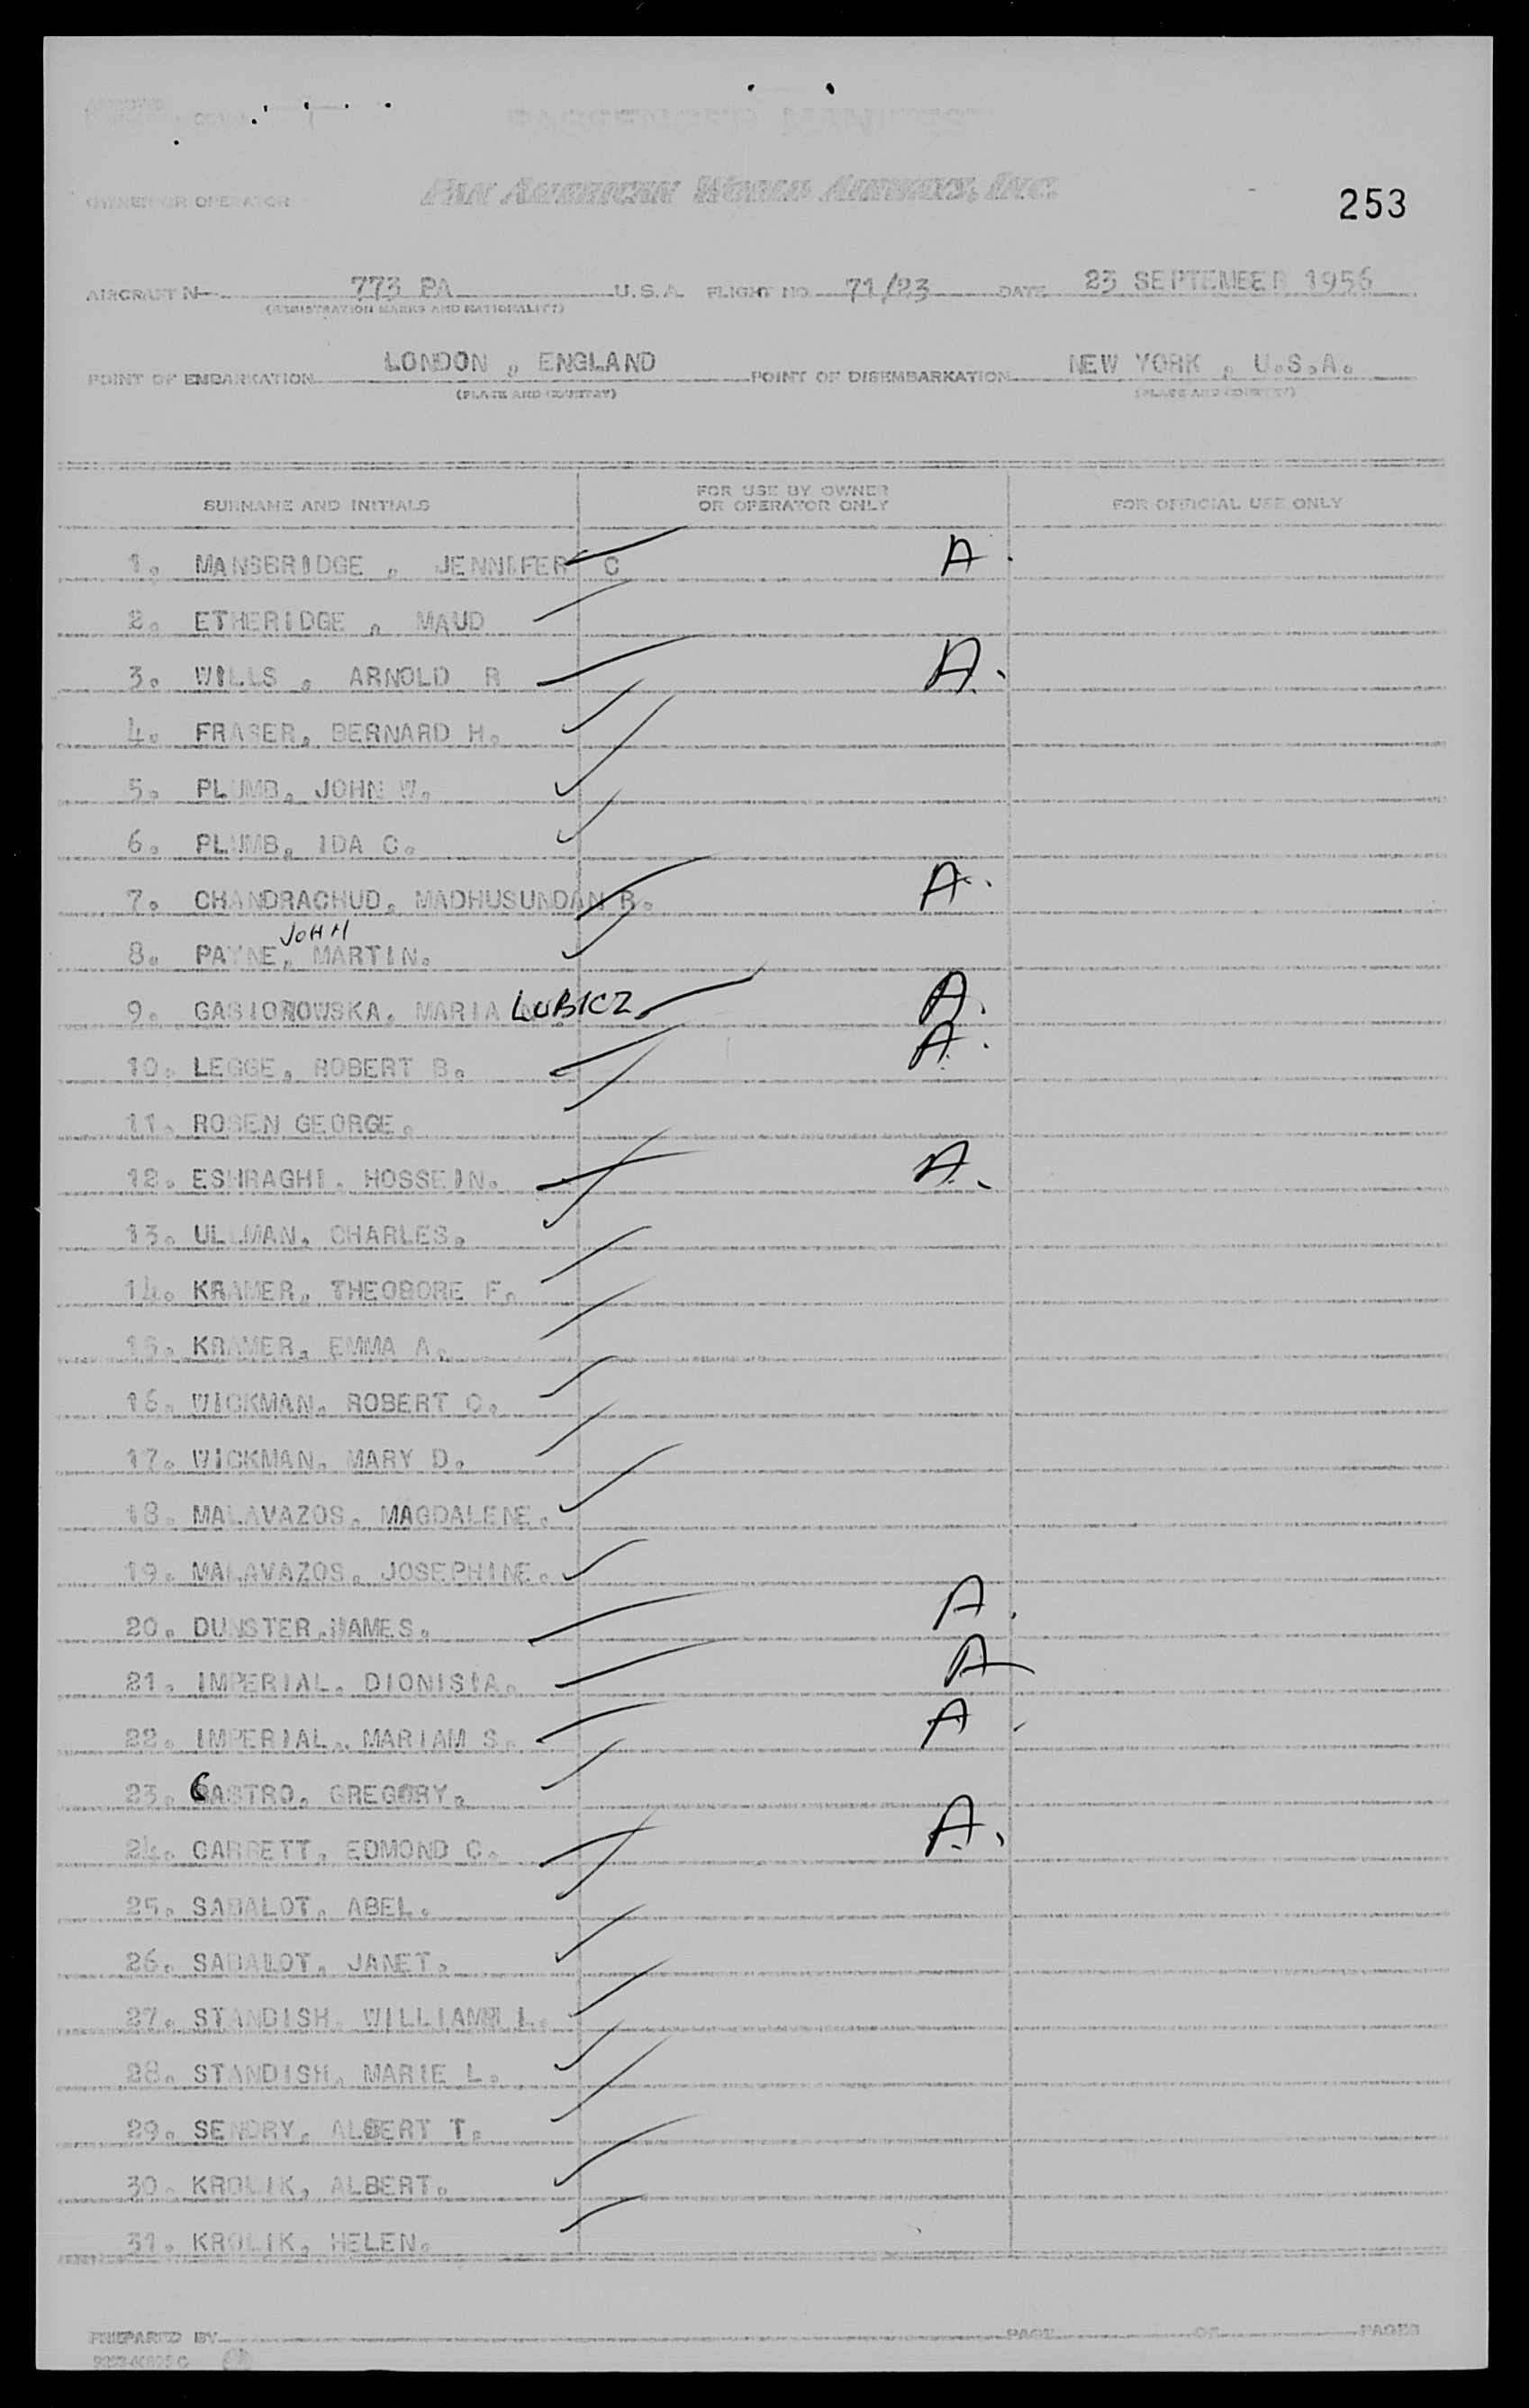 PASSENGER MANIFEST
OWNER OR OPERATOR PAN AMERICAN WORLD AIRWAYS, INC.
253
AIRCRAFT N 773 PA U.S.A. FLIGHT NO 71/23 DATE 23 SEPTEMBER 1956
(REGISTRATION MARKS AND NATIONALITY)
POINT OF EMBARKATION LONDON , ENGLAND POINT OF DISEMBARKATION NEW YORK , U.S.A.
(PLACE AND COUNTRY) (PLACE AND COUNTRY)
SURNAME AND INITIALS FOR USE BY OWNER OR OPERATOR ONLY FOR OFFICIAL USE ONLY
1. MANSBRIDGE , JENNIFER C A.
2. ETHERIDGE , MAUD
3. WILLS , ARNOLD R A.
4. FRASER, BERNARD H.
5. PLUMB, JOHN W.
6. PLUMB, IDA C.
7. CHANDRACHUD, MADHUSUNDAN R. A.
JOHN
8. PAYNE, MARTIN.
9. GASIOROWSKA, MARIA LUBICZ A.
10. LEGGE, ROBERT B. A.
11. ROSEN GEORGE.
12. ESHRAGHI, HOSSEIN. A.
13. ULLMAN, CHARLES.
14. KRAMER, THEODORE F.
15. KRAMER, EMMA A.
16. WICKMAN, ROBERT O.
17. WICKMAN, MARY D.
18. MALAVAZOS, MAGDALENE.
19. MALAVAZOS, JOSEPHINE.
20. DUNSTER, HAMES. A.
21. IMPERIAL, DIONISIA. A
22. IMPERIAL, MARIAM S. A.
23. CASTRO, GREGORY.
24. GARRETT, EDMOND C. A.
25. SABALOT, ABEL.
26. SABALOT, JANET.
27. STANDISH, WILLIAM L.
28. STANDISH, MARIE L.
29. SENDRY, ALBERT T.
30. KROLIK, ALBERT.
31. KROLIK, HELEN.
PREPARED BY PAGE OF PAGES